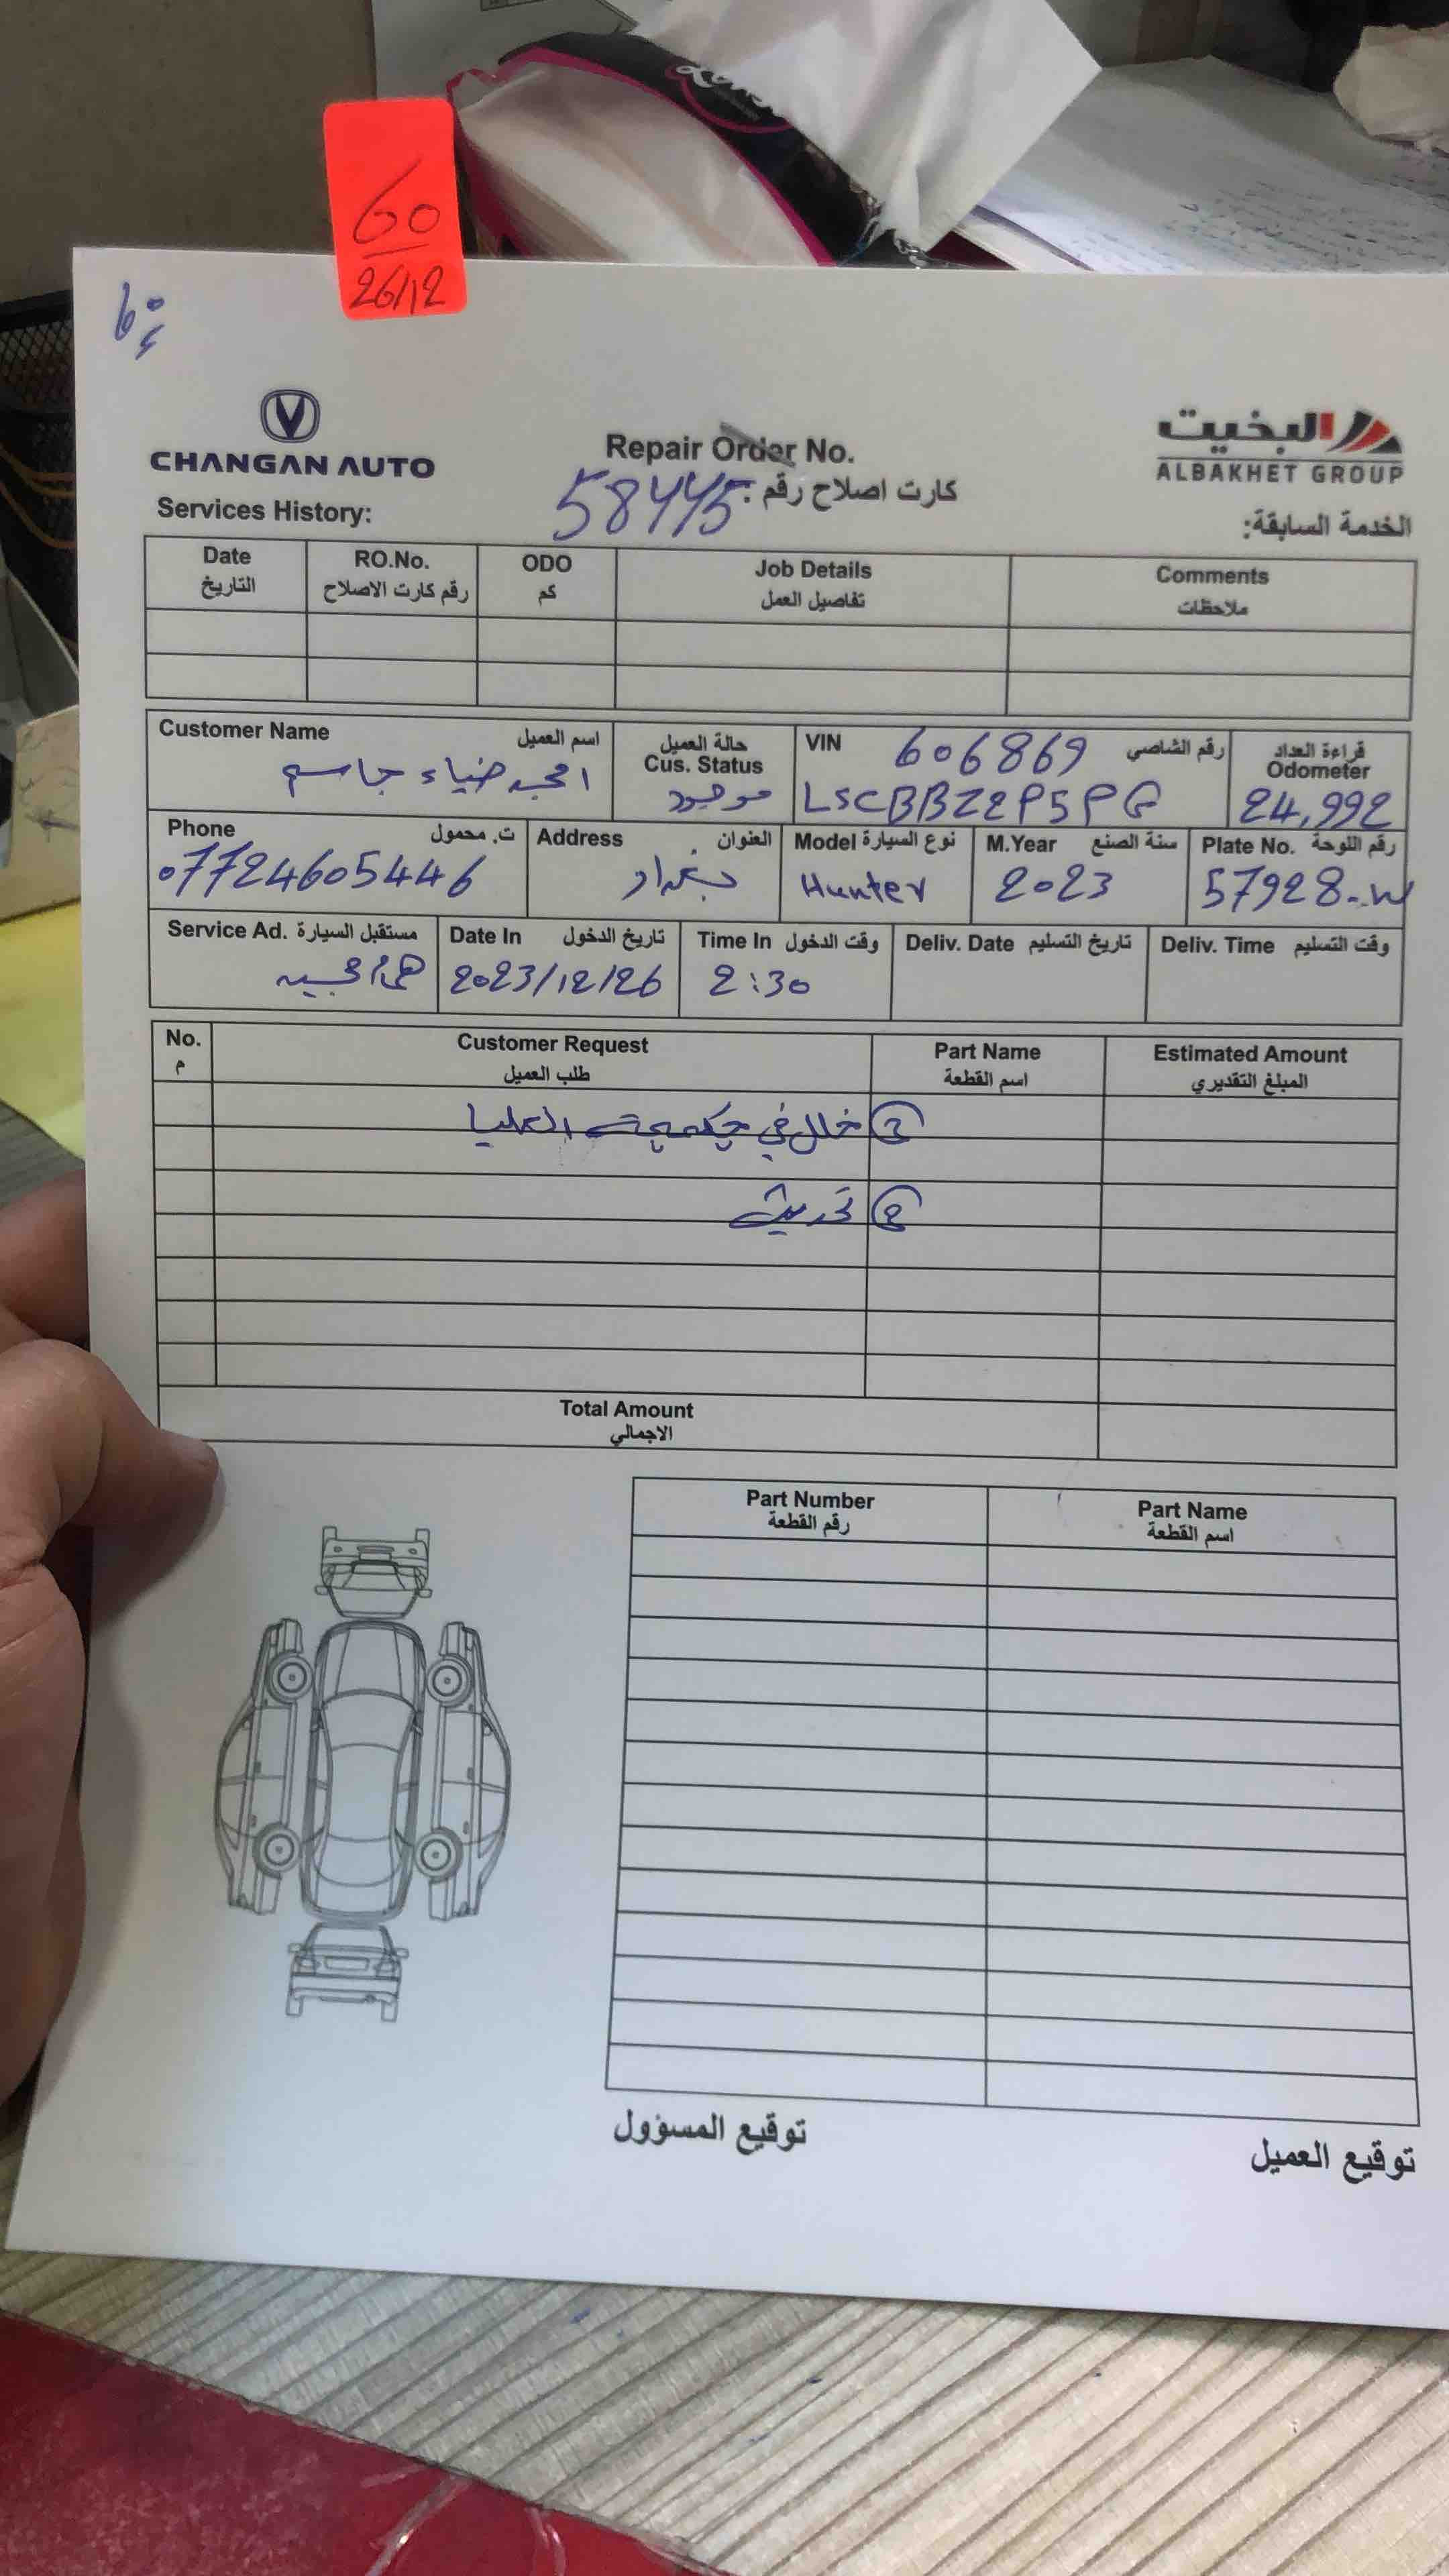 60
26/12
60
CHANGAN AUTO
البخيت
ALBAKHET GROUP
Repair Order No.
كارت اصلاح رقم :
58445
Services History:
الخدمة السابقة:
Date
التاريخ
RO.No.
رقم كارت الاصلاح
ODO
كم
Job Details
تفاصيل العمل
Comments
ملاحظات
Customer Name اسم العميل
امجد ضياء جاسم
حالة العميل
Cus. Status
موجود
VIN 606869 رقم الشاصي
LSCBBZ2P5PG
قراءة العداد
Odometer
24,992
Phone ت. محمول
07724605446
Address العنوان
بغداد
Model نوع السيارة
Hunter
M.Year سنة الصنع
2023
Plate No. رقم اللوحة
57928-W
Service Ad. مستقبل السيارة
Date In تاريخ الدخول
2023/12/26
Time In وقت الدخول
2:30
Deliv. Date تاريخ التسليم
Deliv. Time وقت التسليم
No.
م
Customer Request
طلب العميل
Part Name
اسم القطعة
Estimated Amount
المبلغ التقديري
1 خلل في چكمچة العليا
2 تحديث
Total Amount
الاجمالي
Part Number
رقم القطعة
Part Name
اسم القطعة
توقيع المسؤول
توقيع العميل